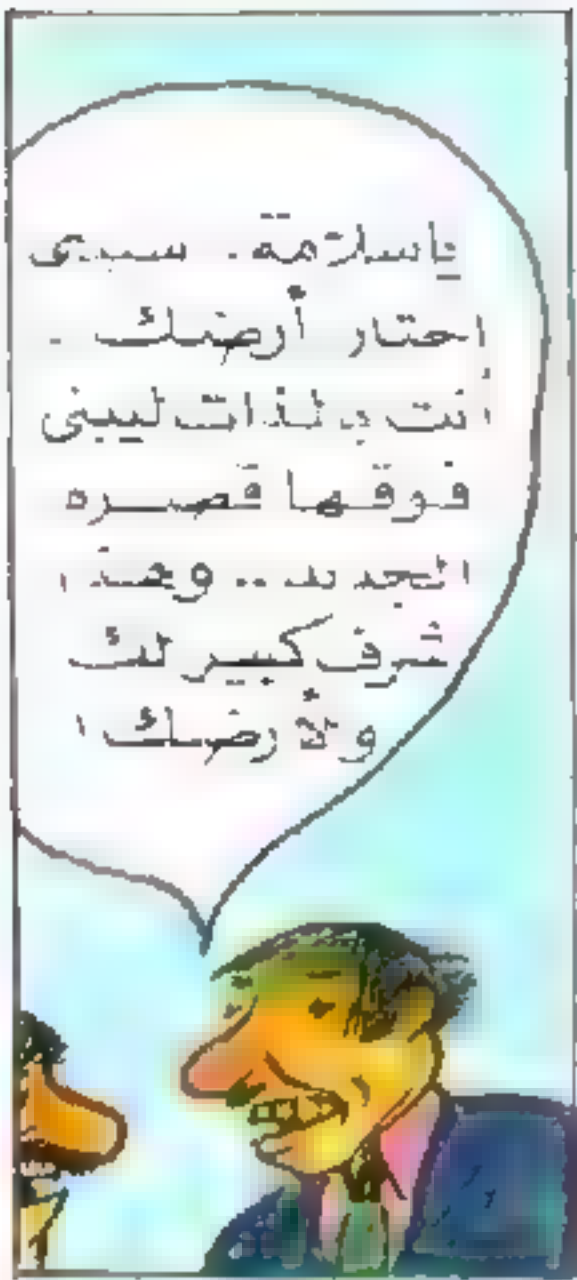 ياسلامة. سيدى
اختار أرضك.
أنت بالذات ليبنى
فوقها قصره
الجديد.. وهذا
شرف كبير لك
ولأرضك!